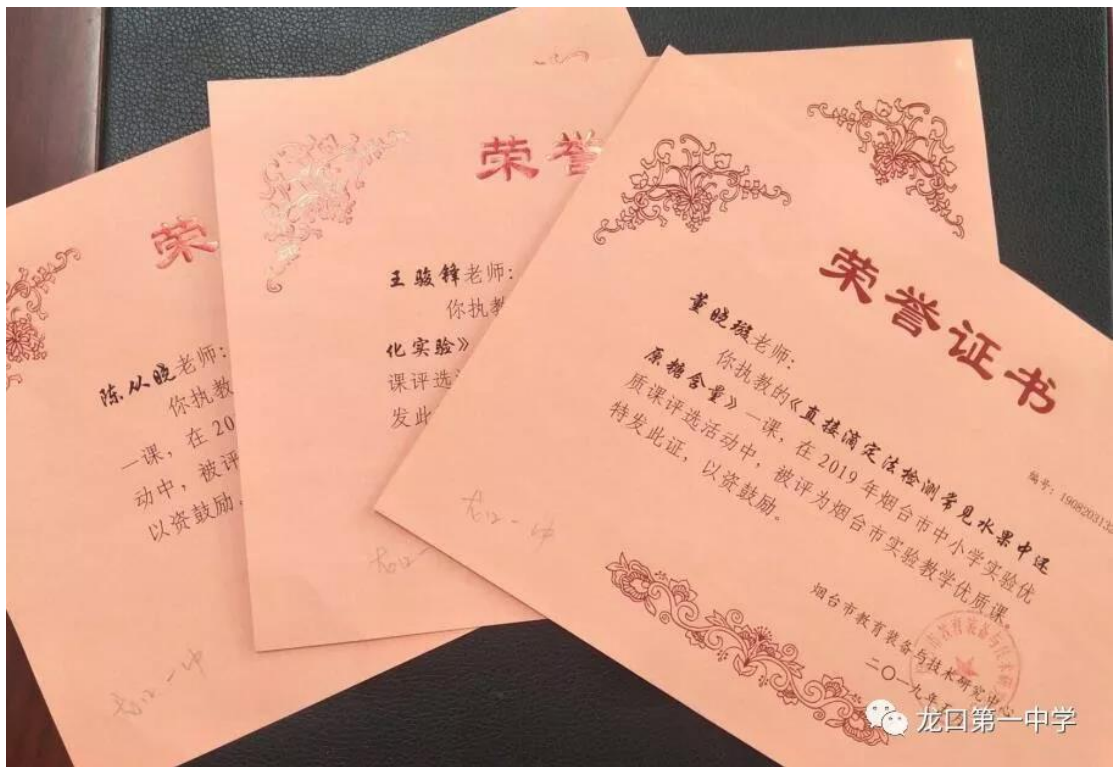 荣
陈从晓老师：
你执教
一课，在20
动中，被评
以资鼓励。
龙口一中
荣誉
王骏锋老师：
你执教
化实验》
课评选
发此
龙口一
荣誉证书
编号：1908203132
董晓璇老师：
你执教的《直接滴定法检测常见水果中还
原糖含量》一课，在2019年烟台市中小学实验优
质课评选活动中，被评为烟台市实验教学优质课。
特发此证，以资鼓励。
龙口一中
烟台市教育装备与技术研究中心
二〇一九年五
龙口第一中学